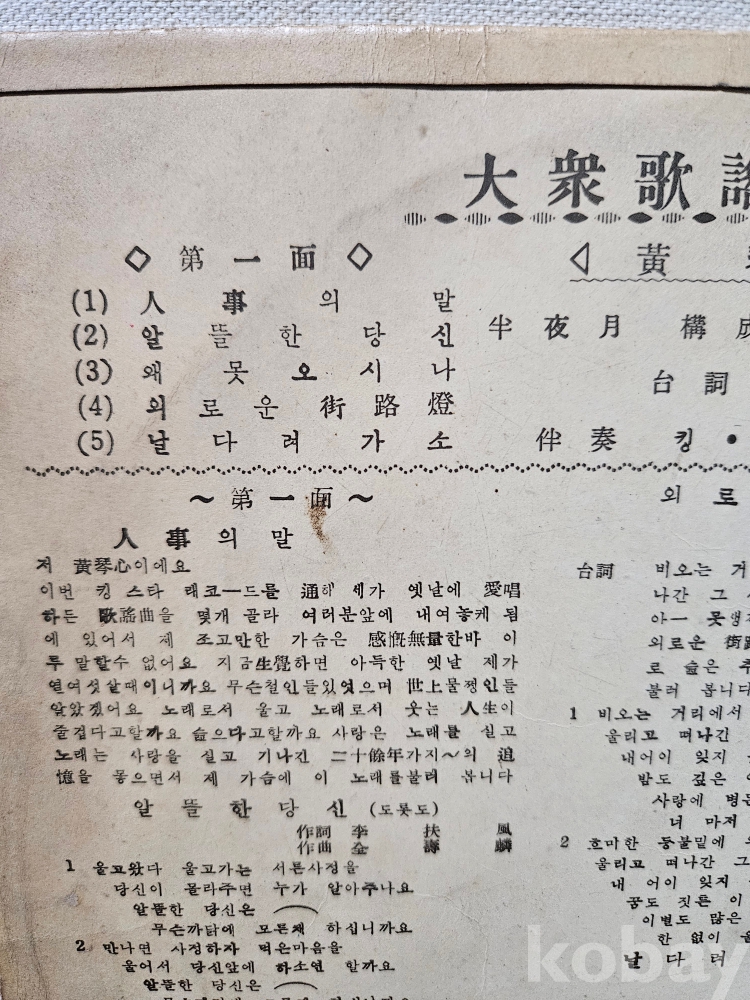 大衆歌謠
◇ 第一面 ◇
◁ 黃
(1) 人事의 말
(2) 알뜰한 당신
(3) 왜 못 오시나
(4) 외로운 街路燈
(5) 날 다려 가소
半夜月 構成
台詞
伴奏 킹 •
～第一面～
人事의 말
저 黃琴心이에요
이번 킹 스타 래코ー드를 通해 제가 옛날에 愛唱
하든 歌謠曲을 몇개 골라 여러분앞에 내여놓게 됨
에 있어서 제 조고만한 가슴은 感慨無量한바 이
루 말할수 없어요 지금生覺하면 아득한 옛날 제가
열여섯살때이니까요 무슨철인들있엇으며 世上물정인들
알았겠어요 노래로서 울고 노래로서 웃는 人生이
즐겁다고할까요 슲으다고할까요 사랑은 노래를 싣고
노래는 사랑을 실고 기나긴 二十餘年가지～의 追
憶을 듷으면서 제 가슴에 이 노래를불러 봅니다
알뜰한당신 (도롯도)
作詞 李扶風
作曲 全壽麟
1 울고왔다 울고가는 서른사정을
당신이 몰라주면 누가 알아주나요
알뜰한 당신은
무슨까닭에 모른체 하십니까요
2 만나면 사정하자 먹은마음을
울어서 당신앞에 하소연 할까요
알뜰한 당신은
외로
台詞 비오는 거
나간 그
아ー 못생
외로운 街路
로 슲은 주
불러 봅니다
1 비오는 거리에서
울리고 떠나간
내어이 잊지
밤도 깊은
사랑에 병든
너 마저
2 흐마한 등불밑에
울리고 떠나간 그
내 어이 잊지
꿈도 짓튼 이
이별도 많은
한 없이 울
날 다려
kobay